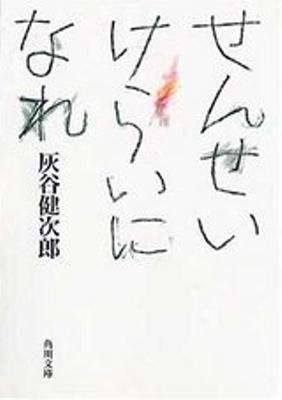 せんせい
けらいに
なれ
灰谷健次郎
角川文庫